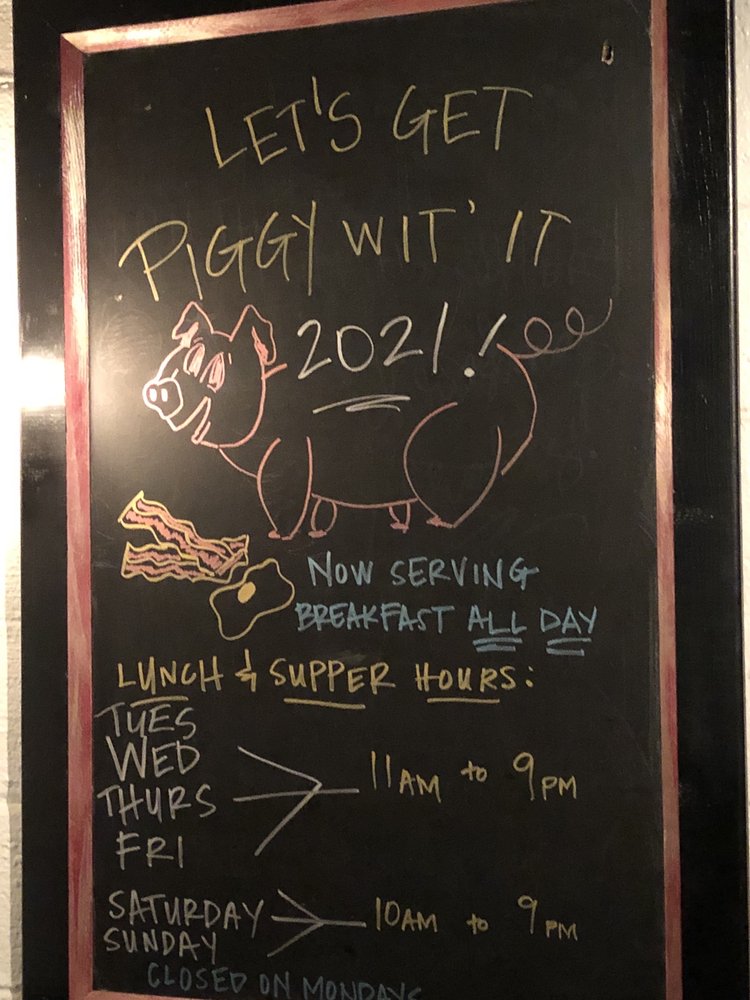 LET'S GET
PIGGY WIT' IT
2021!
NOW SERVING
BREAKFAST ALL DAY
LUNCH & SUPPER HOURS:
TUES
WED
THURS
FRI
11AM to 9PM
SATURDAY
SUNDAY
10AM to 9PM
CLOSED ON MONDAYS